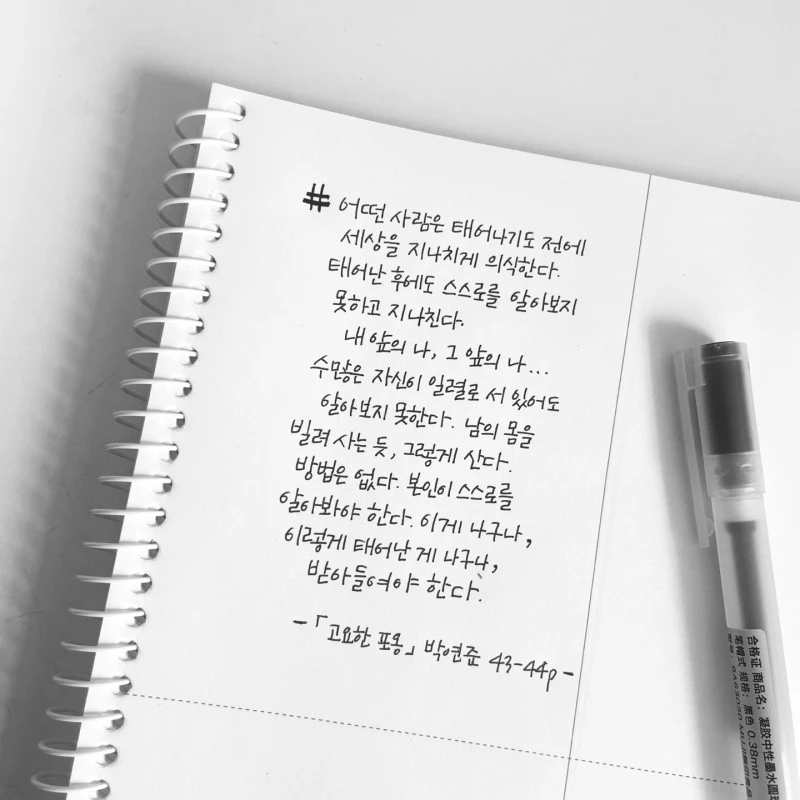 # 어떤 사람은 태어나기도 전에
세상을 지나치게 의식한다.
태어난 후에도 스스로를 알아보지
못하고 지나친다.
내 앞의 나, 그 앞의 나...
수많은 자신이 일렬로 서 있어도
알아보지 못한다. 남의 몸을
빌려 사는 듯, 그렇게 산다.
방법은 없다. 본인이 스스로를
알아봐야 한다. 이게 나구나,
이렇게 태어난 게 나구나,
받아들여야 한다.
-「고요한 포옹」 박연준 43-44p-
合格证 商品名: 凝胶中性墨水圆珠
笔帽式 规格: 黑色 0.38mm